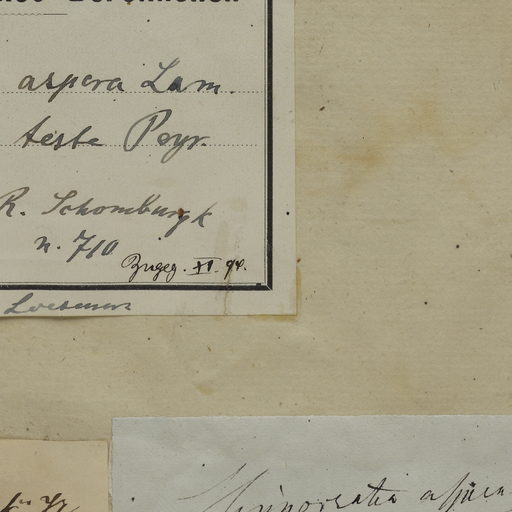 aspera Lam.
teste Peyr.
R. Schomburgk
n. 710
Zugeg. XI. 94.
Loesener
Hippocratea aspera